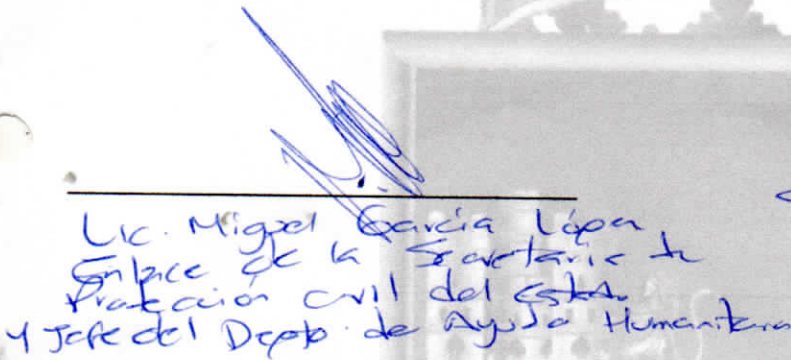 Lic. Miguel García López
Enlace de la Secretaria de
Protección civil del estado
y Jefe del Depto. de Ayuda Humanitaria